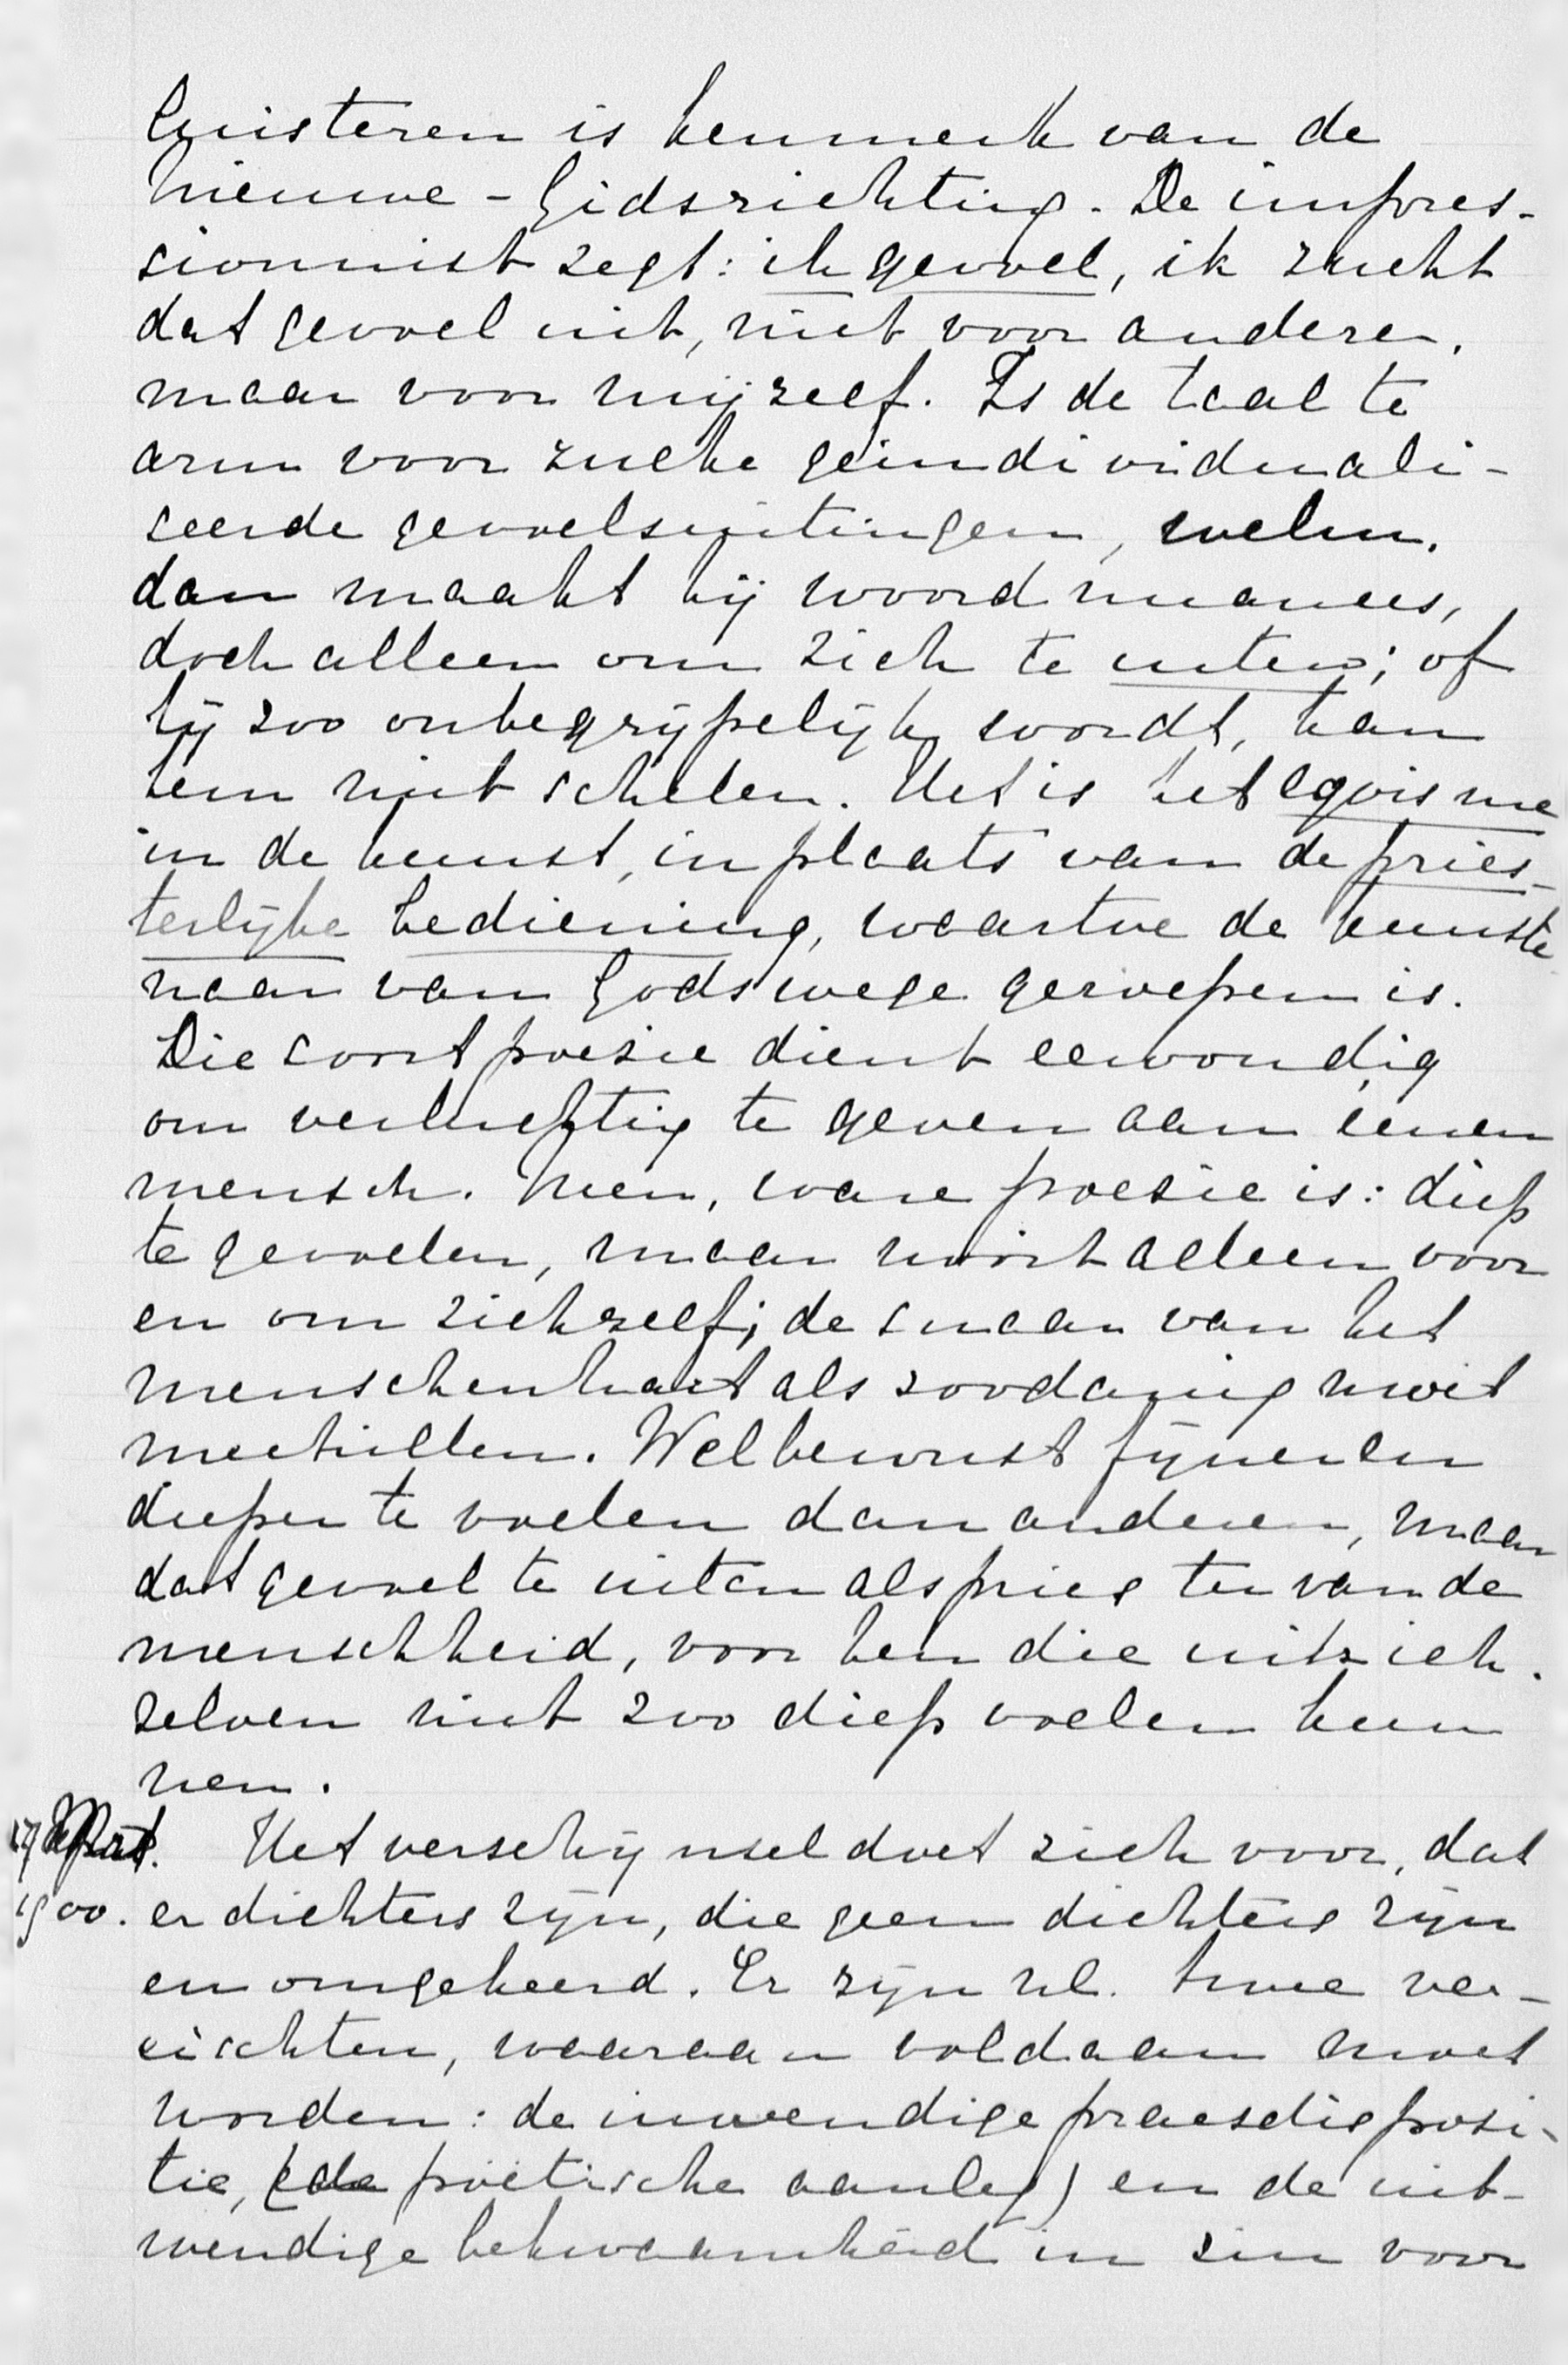 luisteren is kenmerk van de
Nieuwe-Gidsrichting. De impres-
sionnist zegt: ik gevoel, ik zucht
dat gevoel uit, niet voor anderen,
maar voor mijzelf. Is de taal te
arm voor zulke geindividuali-
seerde gevoelsuitingen, welnu,
dan maakt hij woordnuances,
doch alleen om zich te uiten; of
hij zoo onbegrijpelijk wordt, kan
hem niet schelen. Het is het egoisme
in de kunst, in plaats van de pries-
terlijke bediening, waartoe de kunste
naar van Godswege geroepen is.
Die soort poesie dient eenvoudig
om verluchting te geven aan éénen
mensch. Neen, ware poesie is: diep
te gevoelen, maar nooit alleen voor
en om zichzelf; de snaar van het
menschenhart als zoodanig moet
meetrillen. Welbewust fijner en
dieper te voelen dan anderen, maar
dat gevoel te uiten als priester van de
menschheid, voor hen die uit zich-
zelven niet zoo diep voelen kun
nen.
17 Sept. Het verschijnsel doet zich voor, dat
1900. er dichters zijn, die geen dichters zijn
en omgekeerd. Er zijn nl. twee ver-
eischten, waaraan voldaan moet
worden: de inwendige praesdisposi-
tie, (de poëtische aanleg) en de uit-
wendige bekwaamheid in zin voor